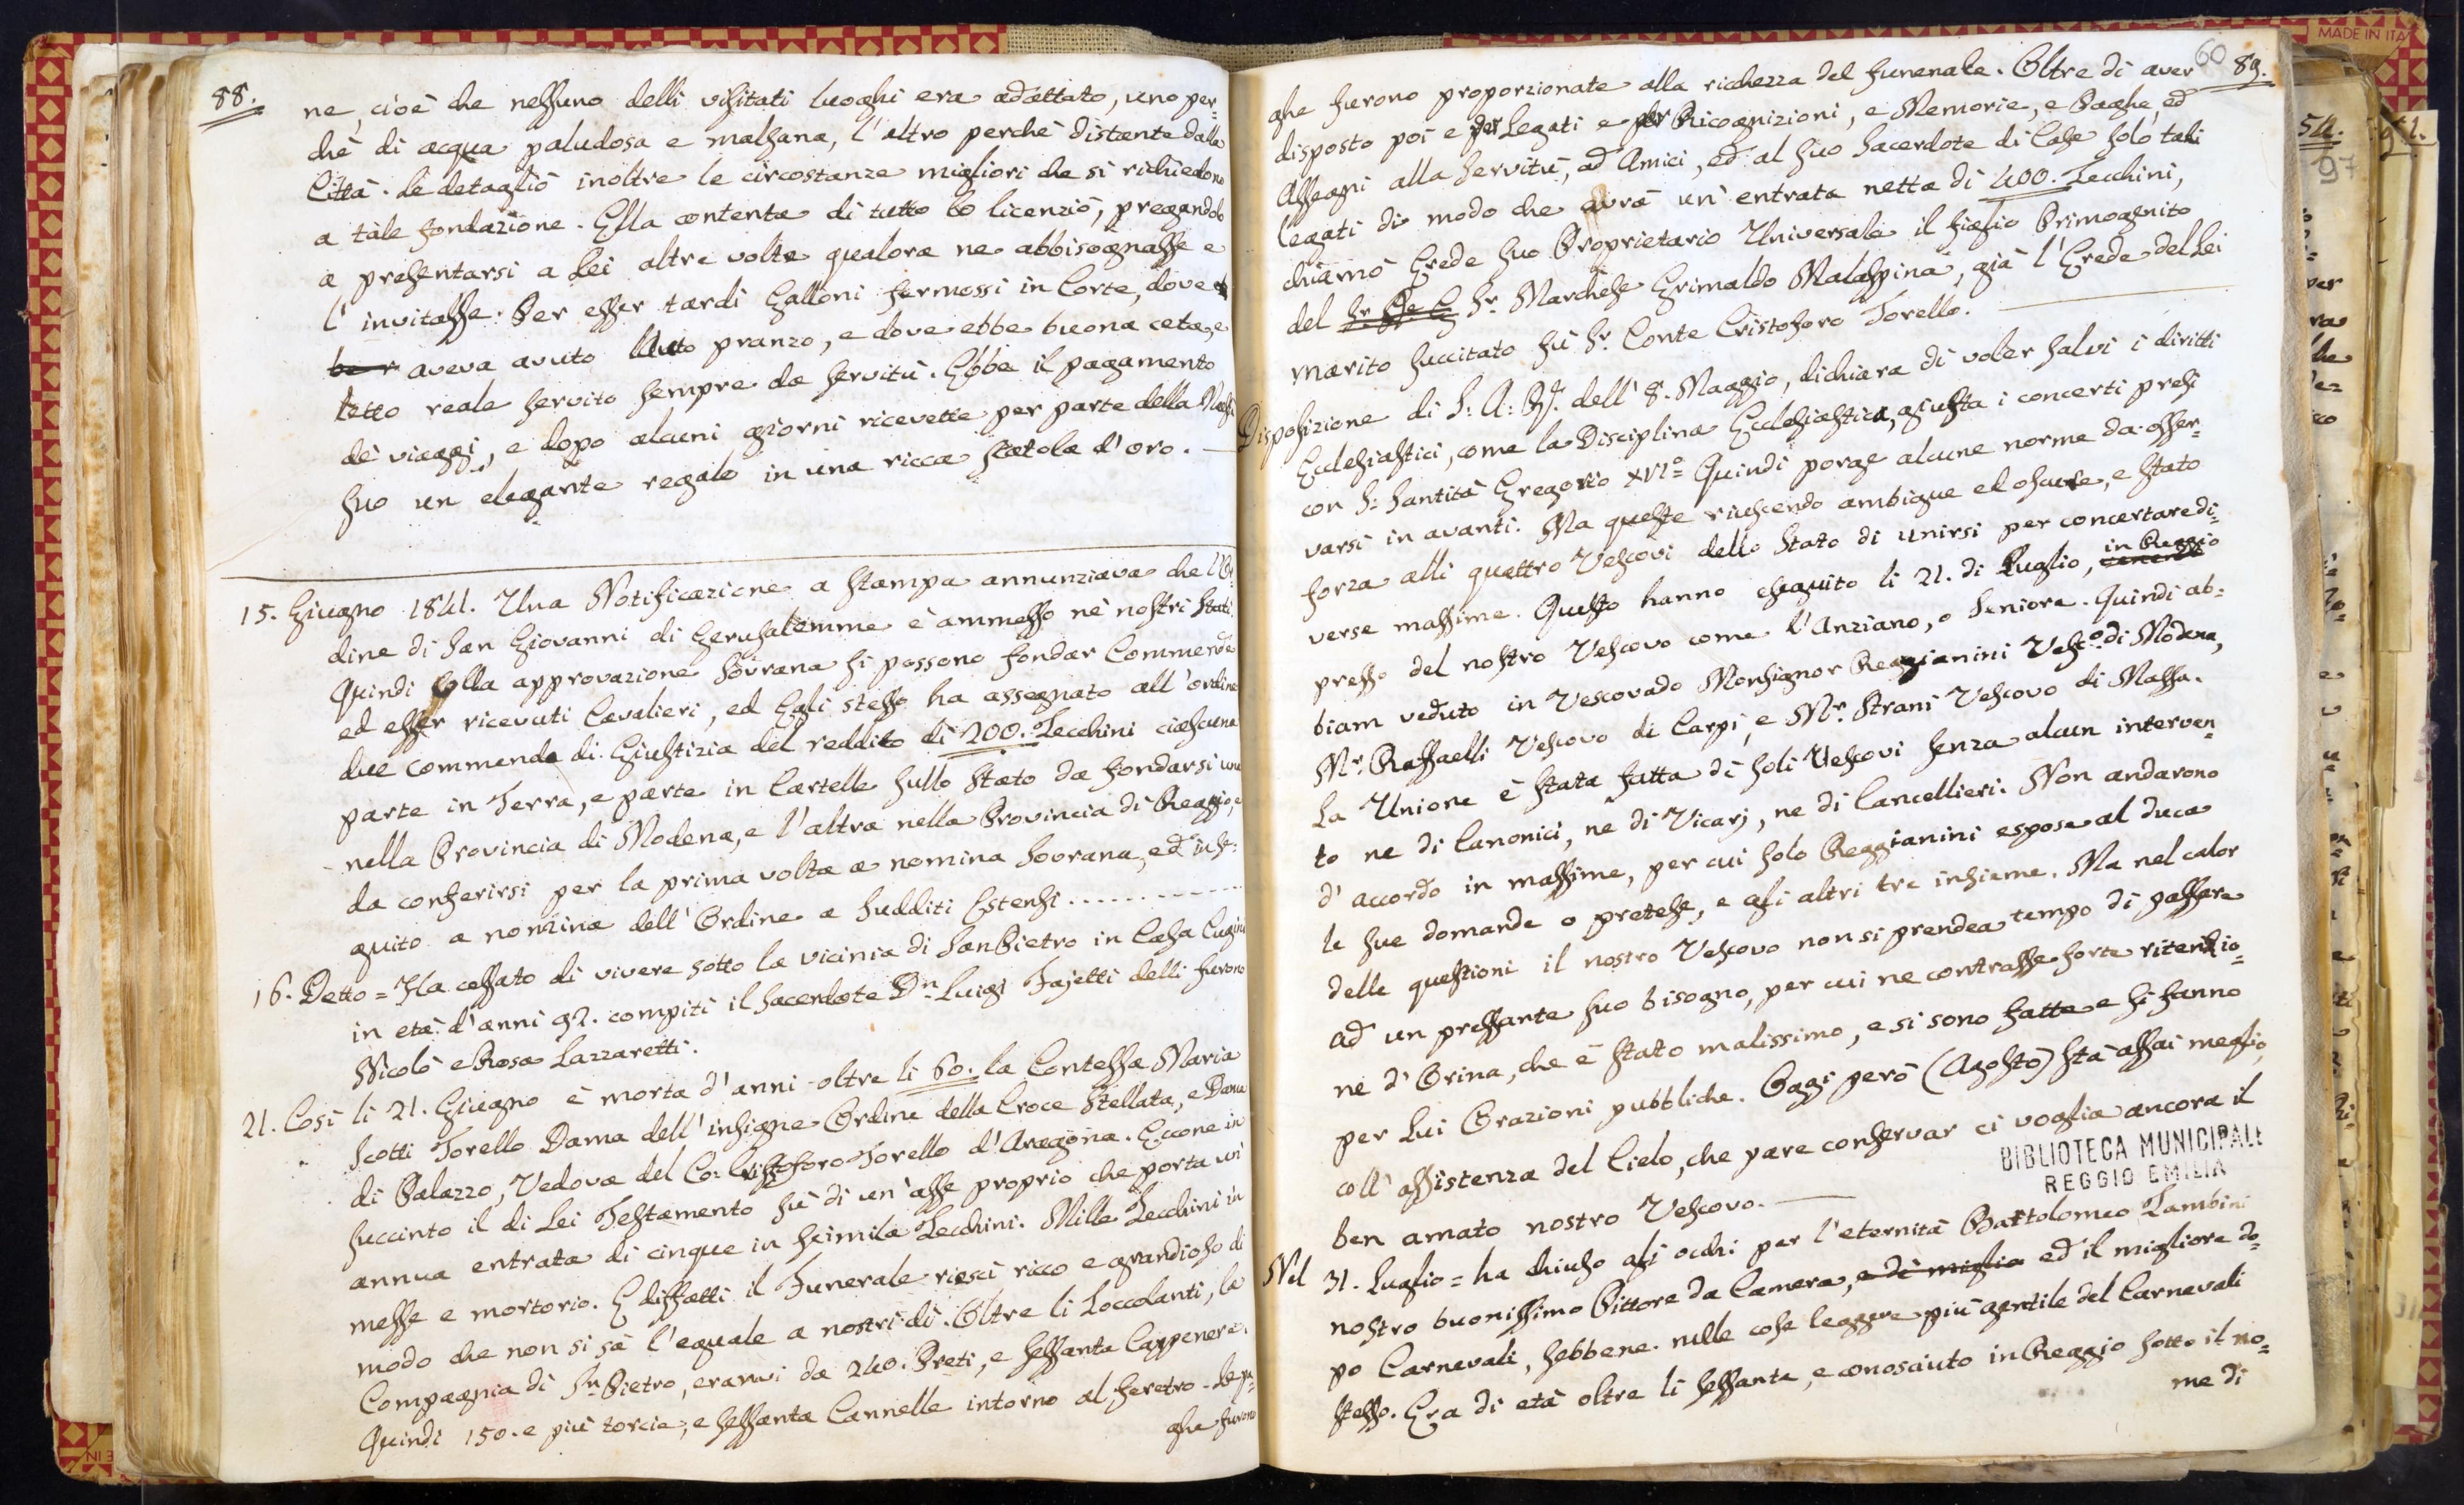 88.
ne, cioè che nessuno delli visitati luoghi era adattato, uno per-
chè di acqua paludosa e malsana, l'altro perchè distante dalla
Città. Le detagliò inoltre le circostanze migliori che si richiedono
a tàle fondazione. Ella contenta di tutto lo licenziò, pregandolo
a presentarsi a Lei altre volte qualora ne abbisognasse e
l'invitasse. Per esser tardi Galloni fermossi in Corte, dove
aveva avuto lauto pranzo, e dove ebbe buona ceta, e
letto reale servito sempre da servitù. Ebbe il pagamento
dè viaggi, e dopo alcuni giorni ricevette per parte della
suo un elegante regalo in una ricca scatola d'oro.
15. Giugno 1841. Una Notificazione a stampa annunziava che l'Or-
dine di San Giovanni di Gerusalemme è ammesso nè nostri Stati.
Quindi colla approvazione Sovrana si possono fondar Commende
ed esser ricevuti Cavalieri, ed Egli stesso ha assegnato all'ordine
due commende di Giustizia del reddito di 200. Zecchini ciascuna
parte in Terra, e parte in Cartelle sullo Stato da fondarsi una
nella Provincia di Modena, e l'altra nella Provincia di Reggio, e
da conferirsi per la prima volta a nomina Sovrana, ed in se-
guito a nomina dell'Ordine a sudditi Estensi ..........
16. Detto = Ha cessato di vivere sotto la vicinia di San Pietro in Casa Cugini
in età d'anni 92. compiti il Sacerdote Dn. Luigi Fajetti delli furono
Nicolò e Rosa Lazzaretti.
21. Così li 21. Giugno è morta d'anni oltre li 60. la Contessa Maria
Scotti Torello Dama dell'insigne Ordine della Croce Stellata, e Dama
di Palazzo, Vedova del Co: Cristoforo Torello d'Aragona. Eccone in
succinto il di Lei Testamento fù di un'asse proprio che porta un'
annua entrata di cinque in seimila Zecchini. Mille Zecchini in
messe e mortorio. E diffatti il Funerale riescì ricco e grandioso di
modo che non si sà l'eguale a nostri dì. Oltre li Zoccolanti, la
Compagnia di Sn. Pietro, eranvi da 240. Preti, e sessanta Cappenere.
Quindi 150. e più torcie, e sessanta Cannelle intorno al feretro. Le pa-
ghe furono
60 89.
ghe furono proporzionate alla ricchezza del funerale. Oltre di aver
disposto poi e per Legati e per Ricognizioni, e Memorie, e Paghe, ed
Assegni alla servitù, ad Amici, ed al suo Sacerdote di Casa solo tali
legati di modo che avrà un'entrata netta di 400. Zecchini,
chiamò Erede suo Proprietario Universale il figlio Primogenito
del Sr. Marchese Grimaldo Malaspina, già l'Erede del Lei
marito succitato fù Sr. Conte Cristoforo Torello.
Disposizione di S: A: R. dell'8. Maggio, dichiara di voler salvi i diritti
Ecclesiastici, come la Disciplina Ecclesiastica, giusta i concerti presi
con S: Santità Gregorio XVI° Quindi porge alcune norme da osser-
varsi in avanti. Ma queste riuscendo ambigue ed oscure, e stato
forza alli quattro Vescovi dello Stato di unirsi per concertare di-
verse massime. Questo hanno eseguito li 21. di Luglio, in Reggio
presso del nostro Vescovo come l'Anziano, o Seniore. Quindi ab-
biam veduto in Vescovado Monsignor Reggianini Vesco. di Modena,
Mr. Raffaelli Vescovo di Carpi, e Mr. Strani Vescovo di Massa.
La Unione è stata fatta di soli Vescovi senza alcun interven-
to ne di Canonici, nè di Vicarj, ne di Cancellieri. Non andarono
d'accordo in massime, per cui solo Reggianini espose al duca
le sue domande o pretese, e gli altri tre insieme. Ma nel calor
delle questioni il nostro Vescovo non si prendea tempo di passare
ad un pressante suo bisogno, per cui ne contrasse forte ritenzio-
ne d'Orina, che è stato malissimo, e si sono fatte e si fanno
per Lui Orazioni pubbliche. Oggi però (Agosto) stà assai meglio,
coll'assistenza del Cielo, che pare conservar ci voglia ancora il
ben amato nostro Vescovo.
BIBLIOTECA MUNICIPALE
REGGIO EMILIA
Nel 31. Luglio = ha chiuso gli occhi per l'eternità Bartolomeo Zambini
nostro buonissimo Pittore da Camera, e dì miglio ed il migliore do-
po Carnevali, sebbene nelle cose leggere più gentile del Carnevali
stesso. Era di età oltre li sessanta, e conosciuto in Reggio sotto il no-
me di
MADE IN ITA
54.
97